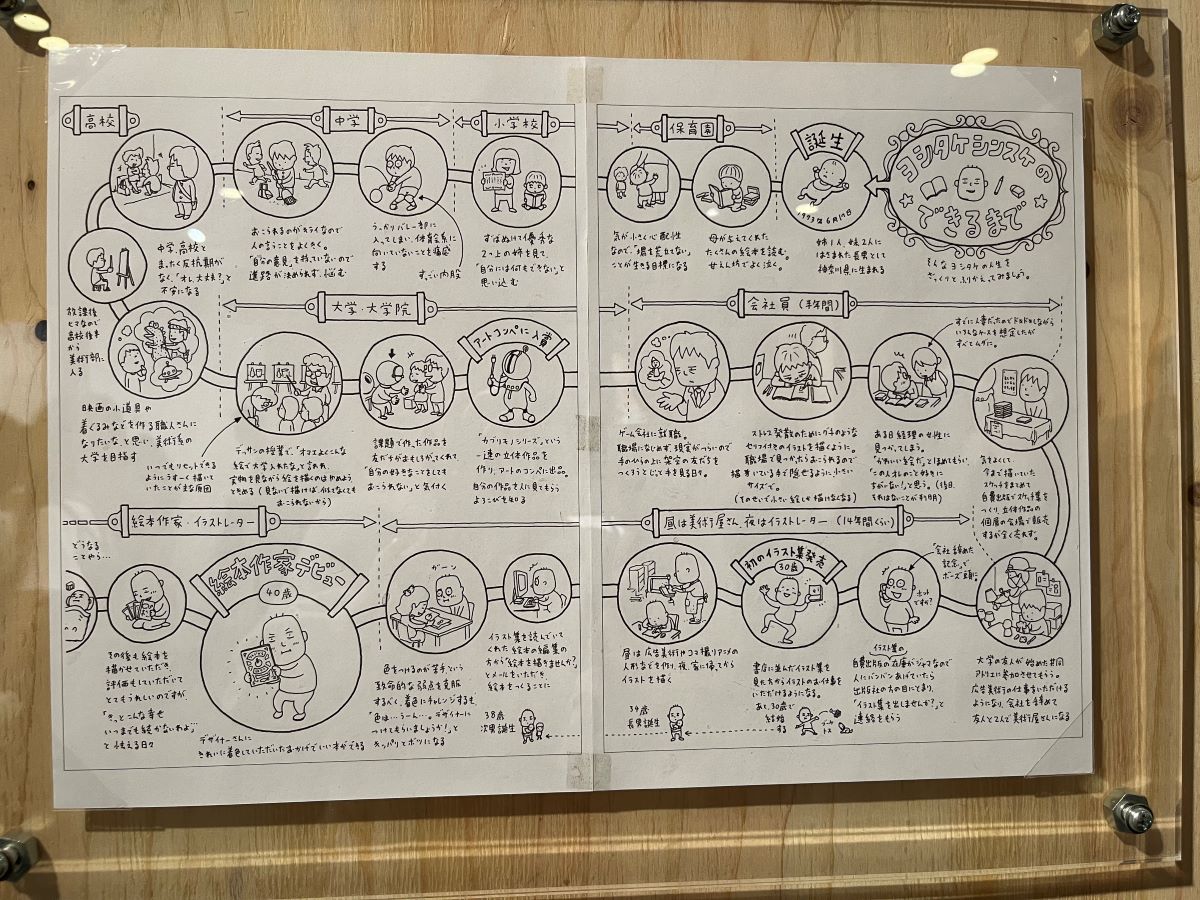 ヨシタケシンスケの
できるまで
そんなヨシタケの人生を
ざっくりとふりかえってみましょう。
誕生
1973年6月17日
姉1人、妹2人に
はさまれた長男として
神奈川県に生まれる
保育園
母が与えてくれた
たくさんの絵本を読む。
甘えん坊でよく泣く。
気が小さく心配性
なので、「場を荒立てない」
ことが生きる目標になる
小学校
ずばぬけて優秀な
2つ上の姉を見て、
「自分には何もできない」と
思い込む
中学
うっかりバレー部に
入ってしまい、体育会系に
向いていないことを痛感
する
すごい内股
おこられるのがキライなので
人の言うことをよくきく。
「自分の意見」を持っていないので
進路が決められず、悩む
高校
中学、高校と
まったく反抗期が
なく、「オレ、大丈夫?」と
不安になる
放課後
ヒマなので
高校後半
から
美術部に
入る
映画の小道具や
着ぐるみなどを作る職人さんに
なりたいな、と思い、美術系の
大学を目指す
大学・大学院
デッサンの授業で、「オマエよくこんな
絵で大学入れたな」と言われ、
実物を見ながら絵を描くのはやめよう
ときめる(見ないで描けば、似てなくても
おこられないから)
いつでもリセットできる
ようにうすーく描いて
いたことが主な原因
課題で作った作品を
友だちがおもしろがってくれて、
「自分の好きなことをしても
おこられない」と気付く
アートコンペに入賞
「カブリモノシリーズ」という
一連の立体作品を
作り、アートのコンペに出品。
自分の作品を人に見てもらう
よろこびを知る
会社員(半年間)
ゲーム会社に就職。
職場になじめず、現実がつらいので
手のひらの上に架空の友だちを
つくろうとじっと手を見る日々。
ストレス発散のためにグチのような
セリフ付きのイラストを描くように。
職場で見つかったらおこられるので
描いている手で隠せるように小さい
サイズで。
(そのせいで小さい絵しか描けなくなる)
ある日経理の女性に
見つかってしまう。
「かわいい絵だ」とほめてもらい、
「この人オレのこと好きに
ちがいない!」と思う。(後日、
それはないことが判明)
すでに人妻だったのでドキドキしながら
いろんなケースを想定したが
すべてムダに。
気をよくして、
今まで描いていた
スケッチをまとめて
自費出版でスケッチ集を
つくり、立体作品の
個展の会場で販売
するが全く売れず。
昼は美術屋さん、夜はイラストレーター(14年間くらい)
大学の友人が始めた共同
アトリエに参加させてもらう。
広告美術の仕事をいただける
ようになり、会社を辞めて
友人と2人で美術屋さんになる
「会社辞めた
記念」で
ボーズ頭に
ホント
ですか?
イラスト集の
自費出版の在庫がジャマなので
人にバンバンあげていたら
出版社の方の目にとまり、
「イラスト集を出しませんか?」と
連絡をもらう
初のイラスト集発売
30歳
書店に並んだイラスト集を
見た方からイラストのお仕事を
いただけるようになる。
あと、30歳で
結婚
する
ブーケ
トス
昼は広告美術やコマ撮りアニメの
人形などを作り、夜、家に帰ってから
イラストを描く
34歳
長男誕生
イラスト集を読んでいて
くれた絵本の編集の
方から「絵本を描きませんか?」
とメールをいただき、
絵本をつくることに
38歳
次男誕生
ガーン
色をつけるのが苦手、という
致命的な弱点を克服
するべく、着色にチャレンジするも、
「色は…うーん…。デザイナーに
つけてもらいましょうか!」と
キッパリとボツになる
絵本作家・イラストレーター
絵本作家デビュー
40歳
デザイナーさんに
きれいに着色していただいたおかげでいい本ができる
その後も絵本を
描かせていただき、
評価もしていただいて
とてもうれしいのですが
「きっとこんな幸せ
いつまでも続かないわよ」
と怯える日々
どうなる
ことやら…